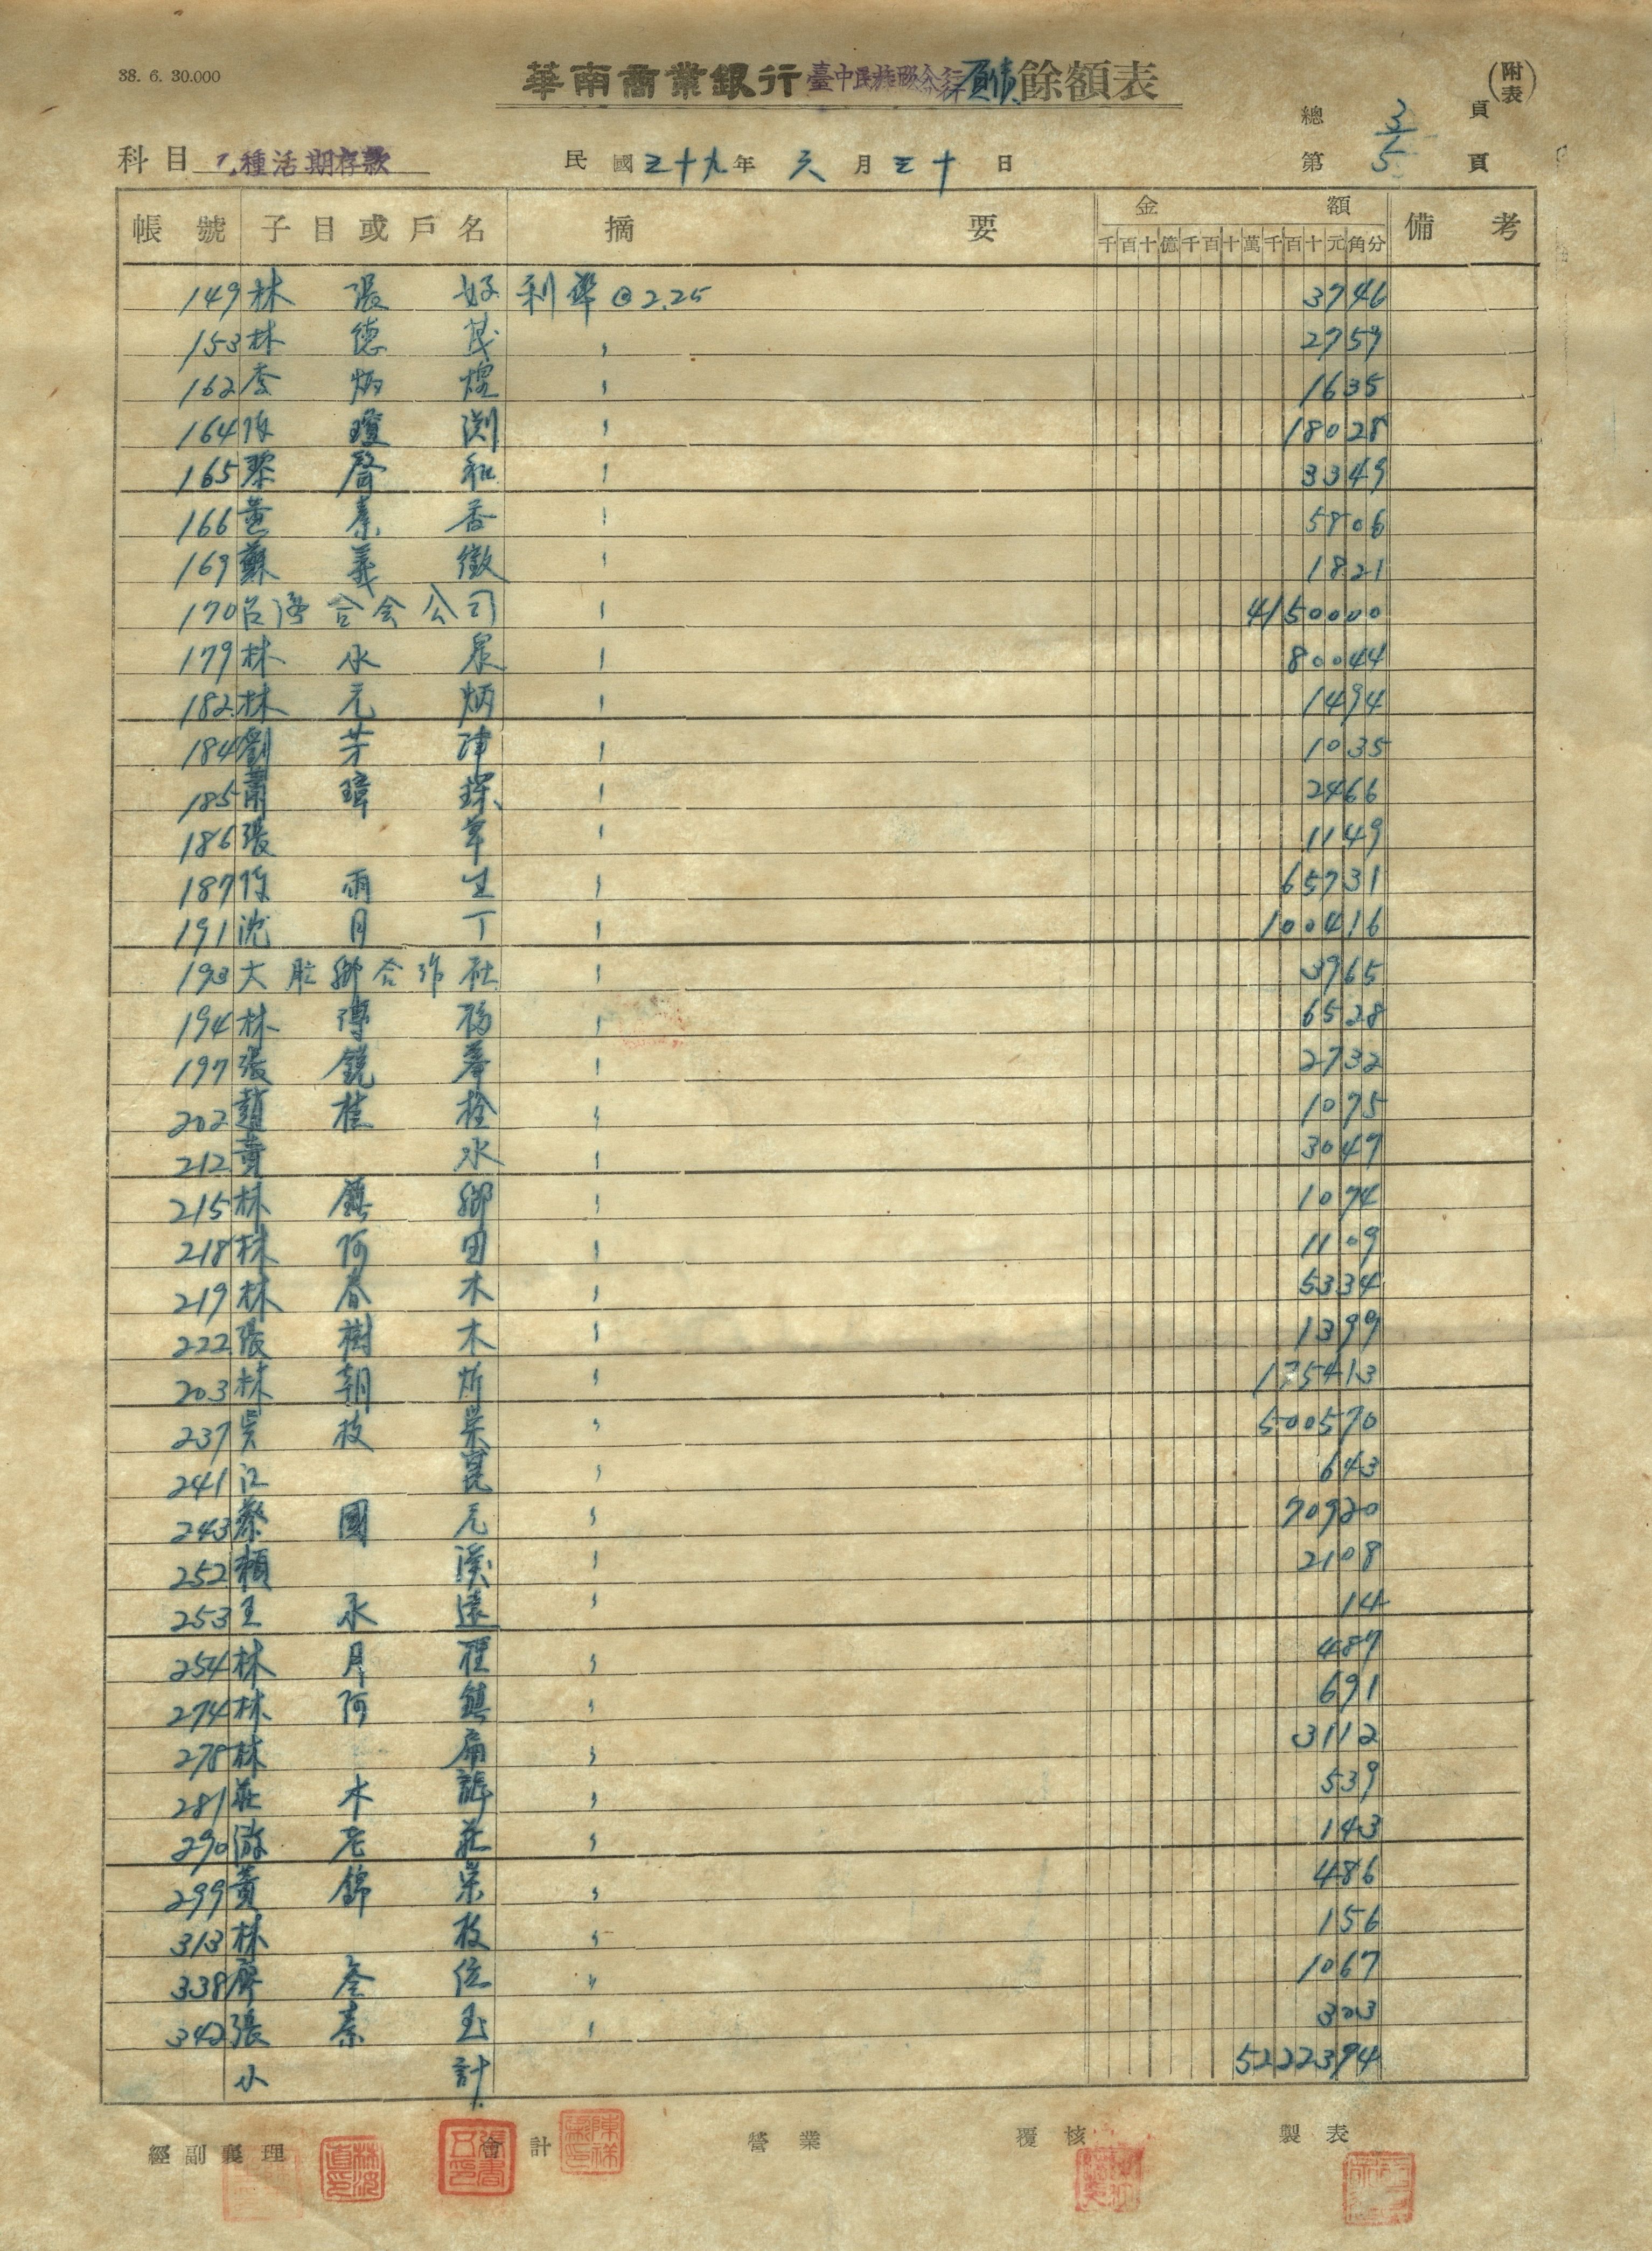 38. 6. 30.000
華南商業銀行臺中民族路分行負債餘額表
(附表)
總 3 頁
科目 乙種活期存款 民國三十九年 六 月 三十 日 第 5 頁
帳號 子目或戶名 摘要 金額 備考
千百十億千百十萬千百十元角分
149 林張好 利率@2.25 3746
153 林德茂 〃 2759
162 李炳煌 〃 1635
164 瓊渕 〃 18028
165 黎聲和 〃 3349
166 黃素香 〃 5806
169 蘇義徵 〃 1821
170 台灣合会公司 〃 4150000
179 林水泉 〃 80044
182 林元炳 〃 1494
184 劉芳津 〃 1035
185 蕭璋琛 〃 2466
186 張草 〃 1149
187 雨生 〃 65731
191 沈月丁 〃 100416
193 大肚鄉合作社 〃 3965
194 林傳福 〃 6528
197 張銳峯 〃 2732
202 趙桂栓 〃 1075
212 黃水 〃 3047
215 林鎮鄉 〃 1074
218 林阿田 〃 1109
219 林春木 〃 5334
222 張樹木 〃 1399
203 林朝炘 〃 175413
237 吳枝榮 〃 500570
241 江 〃 643
243 蔡國元 〃 70920
252 賴溪 〃 2108
253 王永遠 〃 14
254 林月程 〃 487
274 林阿鎮 〃 691
278 林扁 〃 3112
281 莊木 〃 539
290 游老莊 〃 143
299 黃錦榮 〃 486
313 林枝 〃 156
338 廖奎位 〃 1067
342 張素玉 〃 303
小計 5222394
經副襄理 會計 營業 覆核 製表